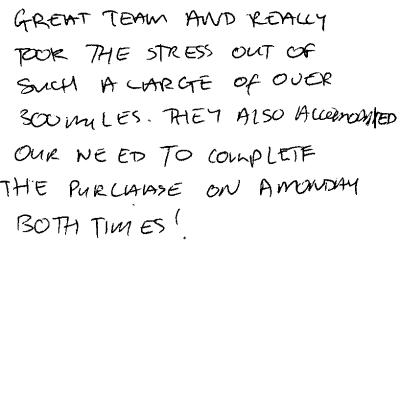 GREAT TEAM AND REALLY
TOOK THE STRESS OUT OF
SUCH A LARGE OF OVER
300 MILES. THEY ALSO ACCOMODATED
OUR NEED TO COMPLETE
THE PURCHASE ON A MONDAY
BOTH TIMES!